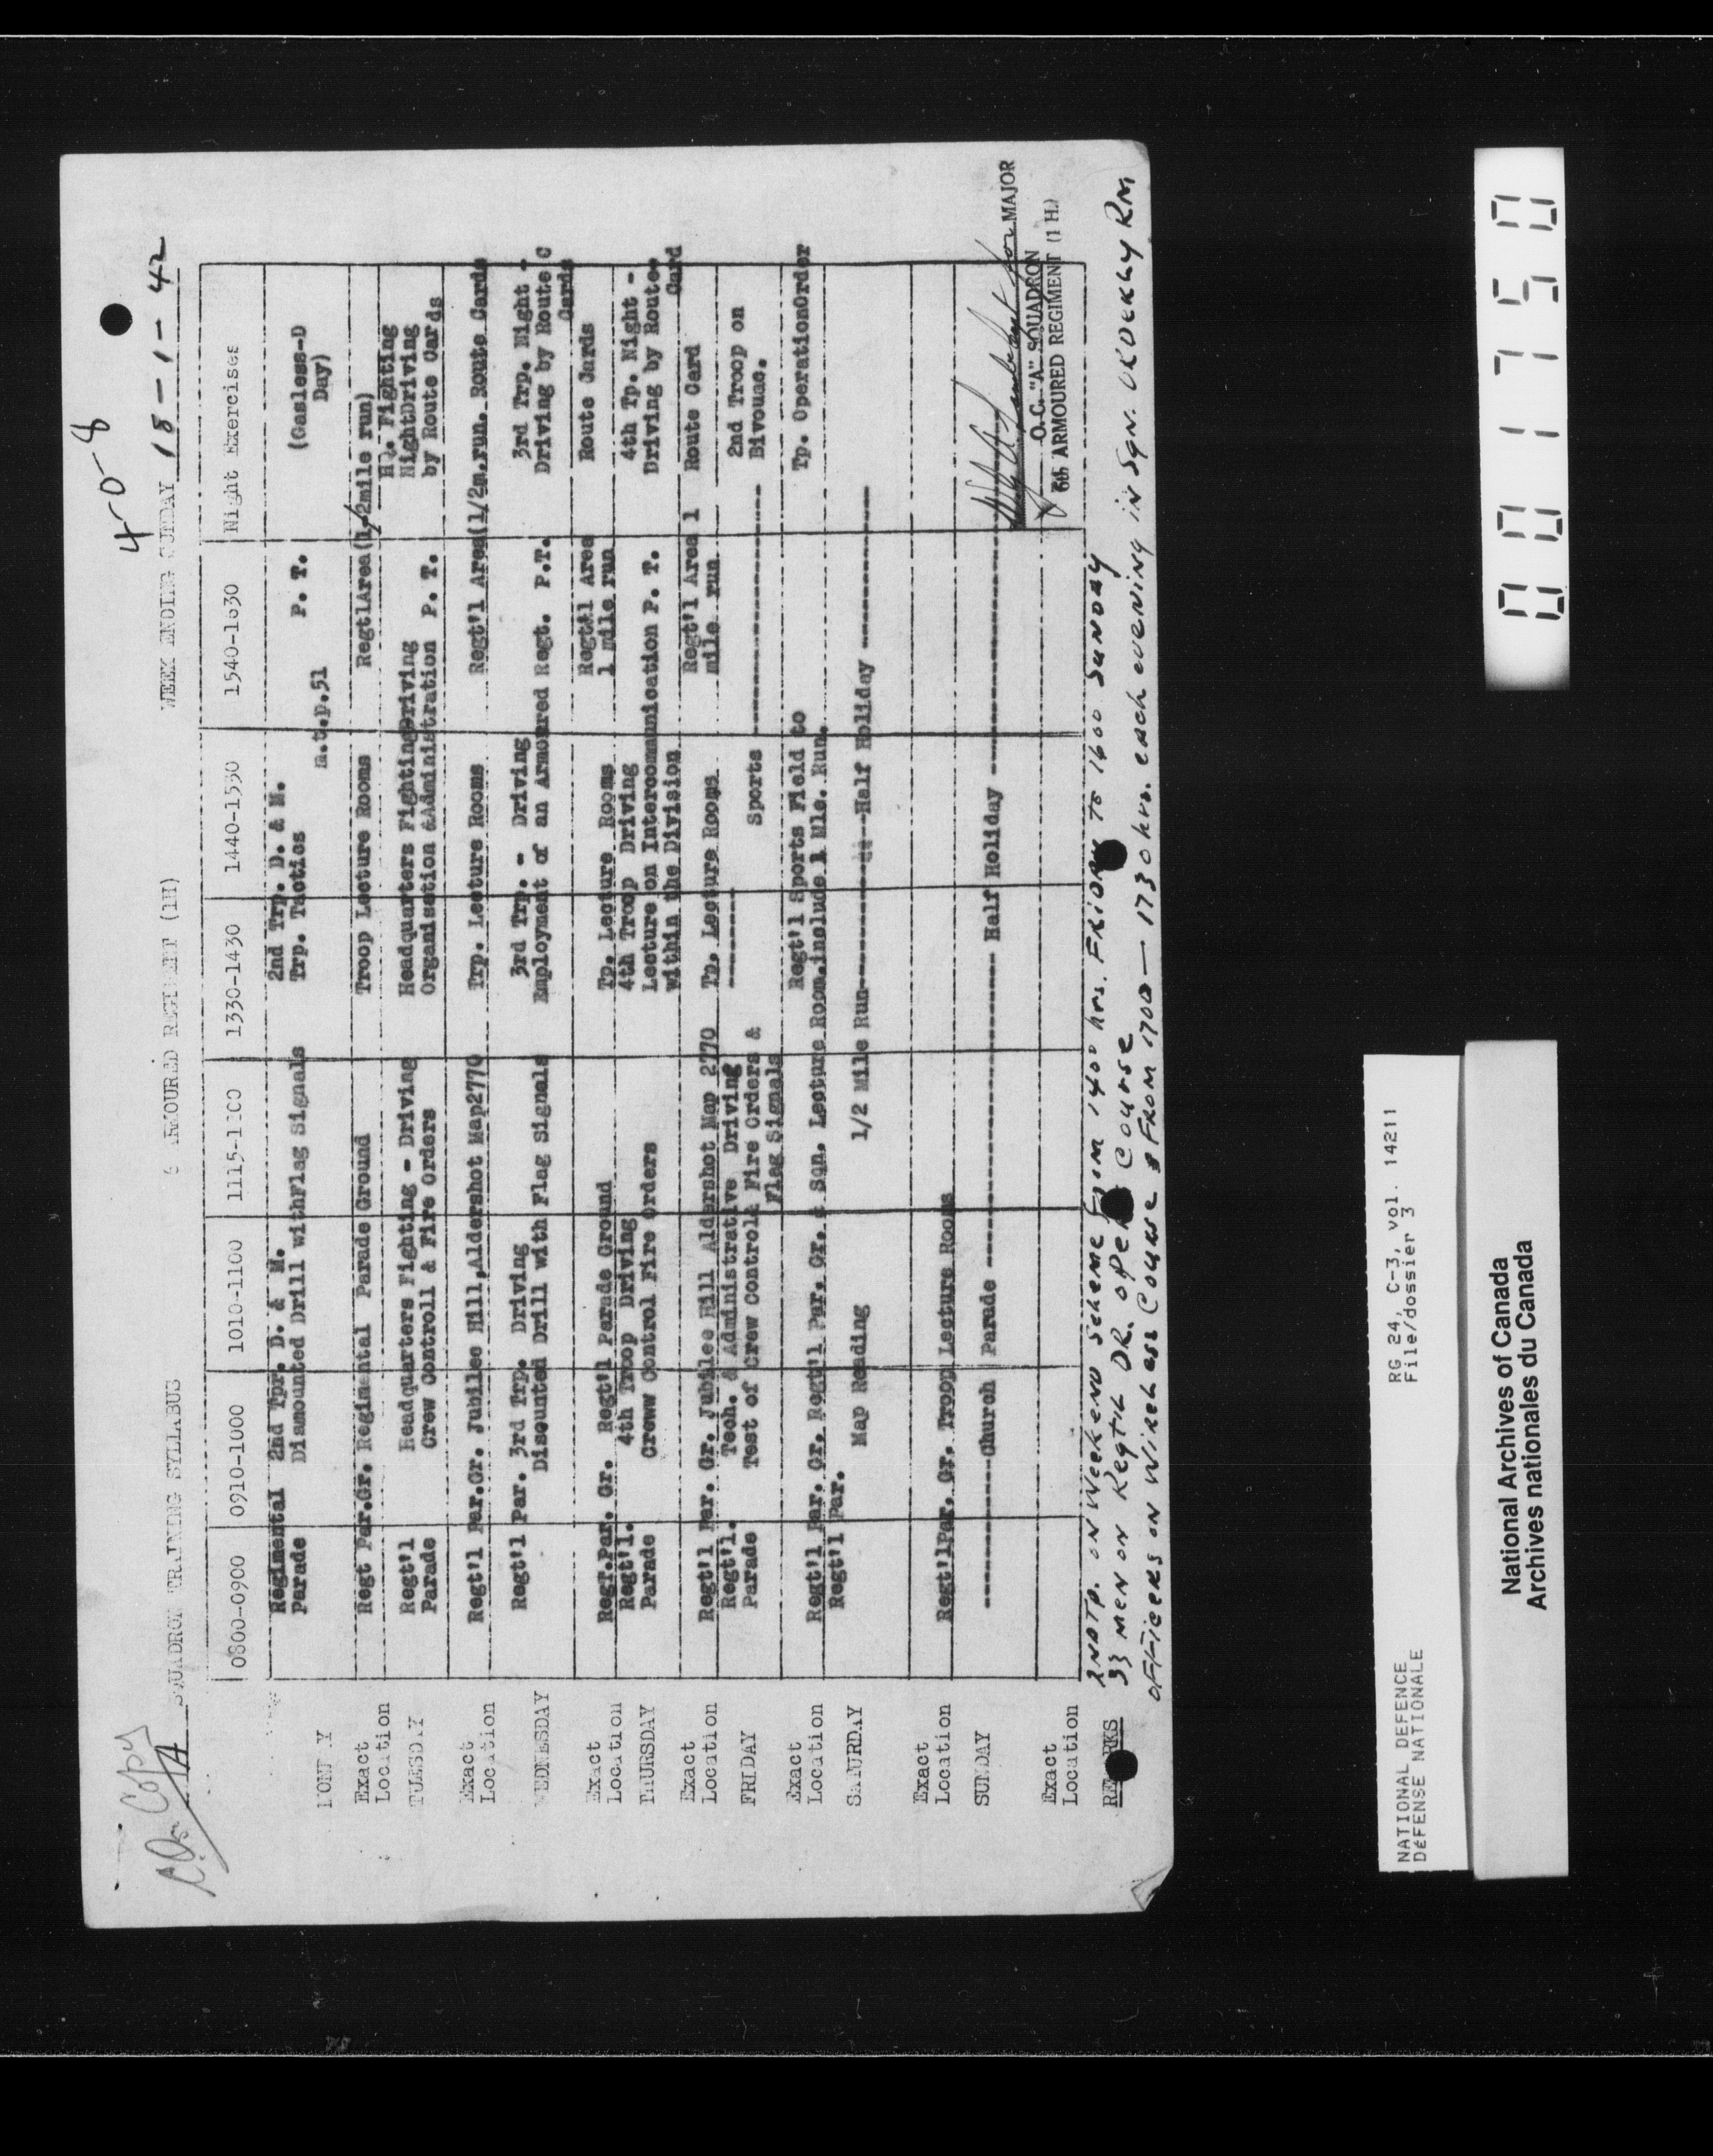 4-0-8
C.O's Copy
"A" SQUADRON TRAINING SYLLABUS 6 ARMOURED REGIMENT (1H) WEEK ENDING SUNDAY 18-1-42
0800-0900 0910-1000 1010-1100 1115-1100 1330-1430 1440-1530 1540-1630 Night Exercises
MONDAY
Regimental 2nd Tpr. D. & M. 2nd Trp. D. & M.
Parade Dismounted Drill withFlag Signals Trp. Tactics P. T. (Gasless-D
m.t.p.51 Day)
Exact Regt Par.Gr. Regimental Parade Ground Troop Lecture Rooms RegtlArea(1/2mile run)
Location
TUESDAY
Hq. Fighting
Regt'l Headquarters Fighting - Driving Headquarters FightingDriving NightDriving
Parade Crew Controll & Fire Orders Organisation &Administration P. T. by Route Cards
Exact Regt'l Par.Gr. Jubilee Hill,Aldershot Map2770 Trp. Lecture Rooms Regt'l Area(1/2m.run. Route Cards
Location
WEDNESDAY
Regt'l Par. 3rd Trp. Driving 3rd Trp. - Driving 3rd Trp. Night -
Disounted Drill with Flag Signals Employment of an Armoured Regt. P.T. Driving by Route C
Cards
Exact Regt&l Area Route Cards
Location RegT.Par. Gr. Regt'l Parade Ground Tp. Lecture Rooms 1 mile run
THURSDAY
Regt'l. 4th Troop Driving 4th Troop Driving 4th Tp. Night -
Parade Creww Control Fire Orders Lecture on Intercommunication P. T. Driving by Route-
within the Division Card
Exact Regt'l Area 1 Route Card
Location Regt'l Par. Gr. Jubilee Hill Aldershot Map 2770 Tp. Lecture Rooms mile run
FRIDAY
Regt'l. Tech. & Administrative Driving -------- 2nd Troop on
Parade Test of Crew Control& Fire Orders & Sports ---------------- Bivouac.
Flag Signals
Exact Regt'l Sports Field to Tp. OperationOrder
Location Regt'l Par. Gr. Regt'l Par. Gr. & Sqn. Lecture Room.include 1 Mle. Run.
SATURDAY
Regt'l Par.
Map Reading 1/2 Mile Run----------dd--Half Holiday ----------
Exact
Location Regt'lPar. Gr. Troop Lecture Rooms
SUNDAY
----------Church Parade ---------------- Half Holiday ----------------
Exact
Location
for MAJOR
O.C. "A" SQUADRON
6th ARMOURED REGIMENT (1 H.)
REMARKS 2ND TP. ON Week END Scheme From 1400 hrs. FRIDAY TO 1600 SUNDAY
33 men on Regt'l DR. OPER Course
OFFICERS ON WIRELESS Course & FROM 1700 — 1730 hrs. each evening in Sqn. ORDERLY RM
0 0 1 7 5 0
NATIONAL DEFENCE RG 24, C-3, vol. 14211
DÉFENSE NATIONALE File/dossier 3
National Archives of Canada
Archives nationales du Canada